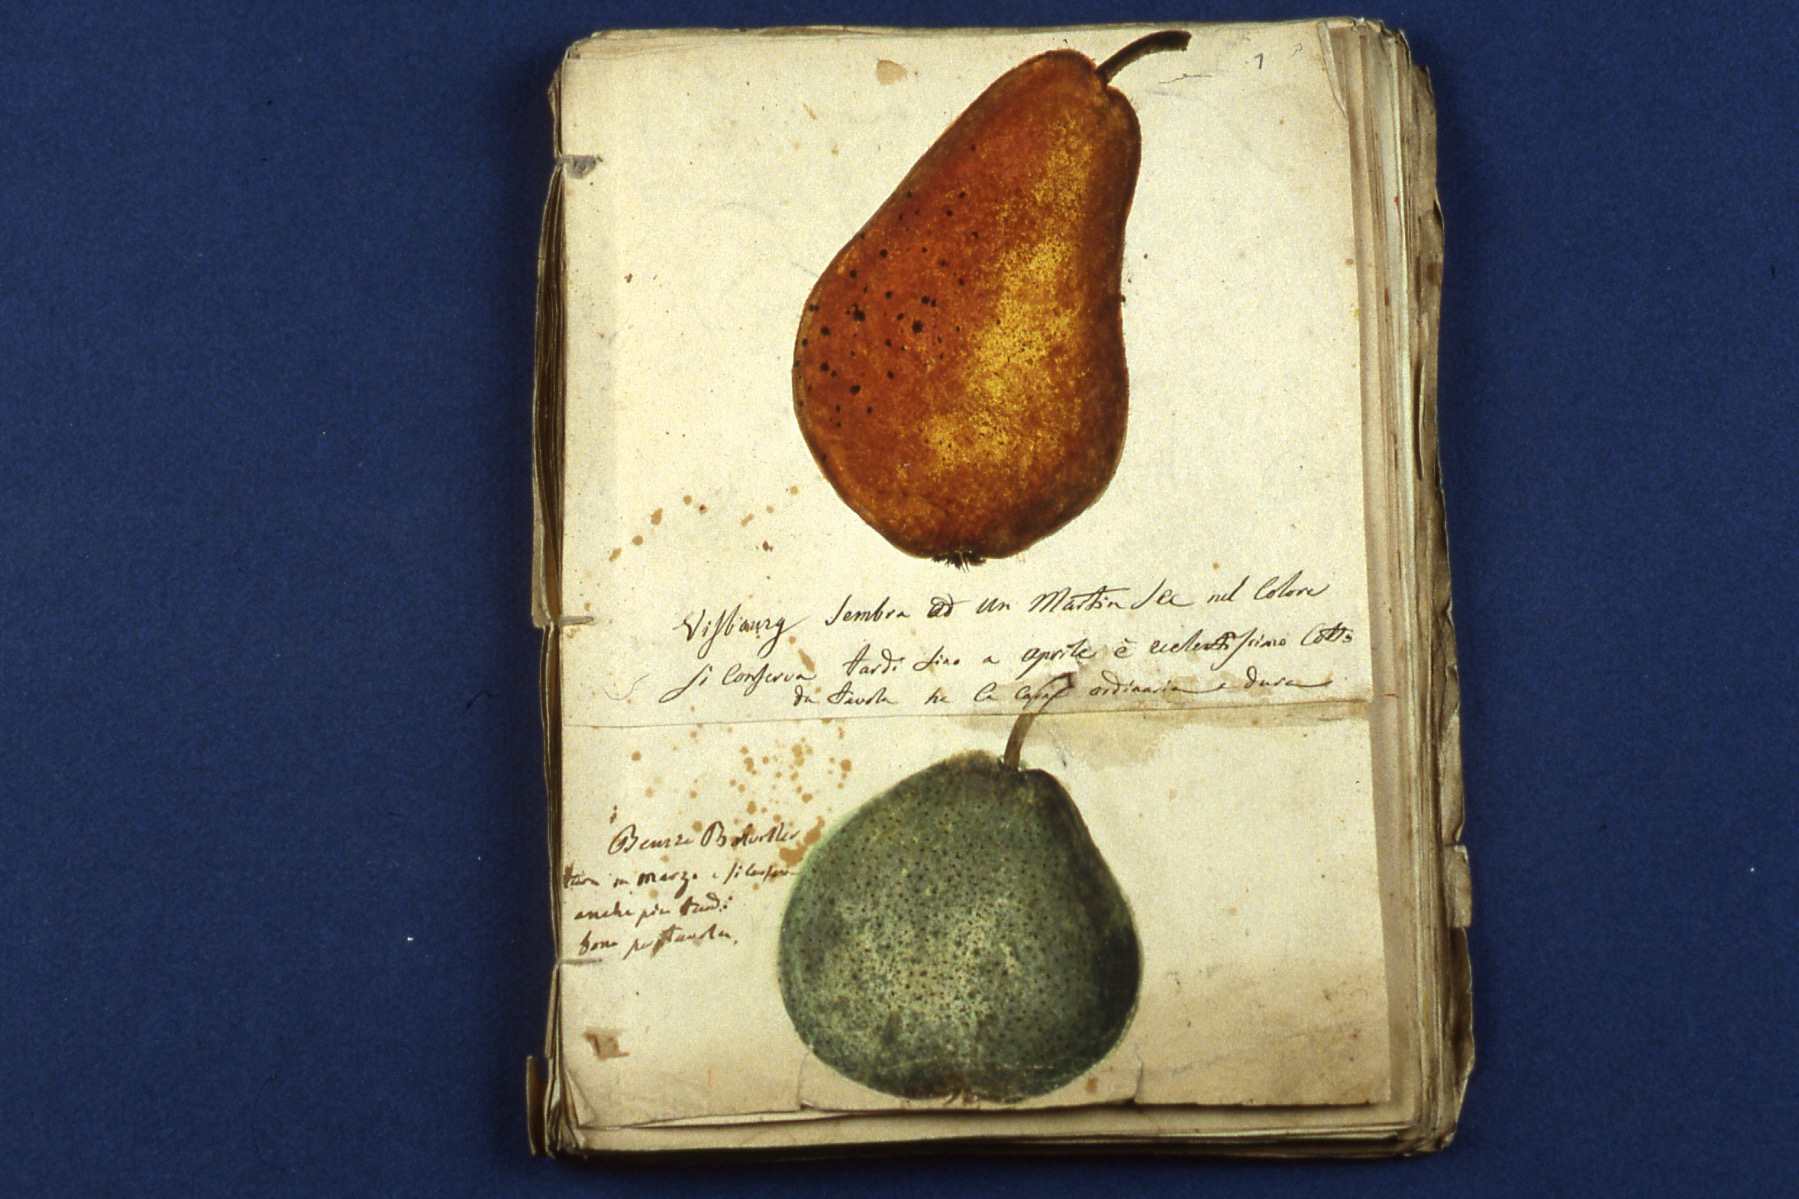 1
Visbourg sembra ad un Martin Sec nel Colore
si Conserva tardi sino a aprile è ecelentissimo Cotto
da tavola ha la ordinaria e dura
Beurre
in marzo e si conserva
anche piu tardi
bona per tavola.